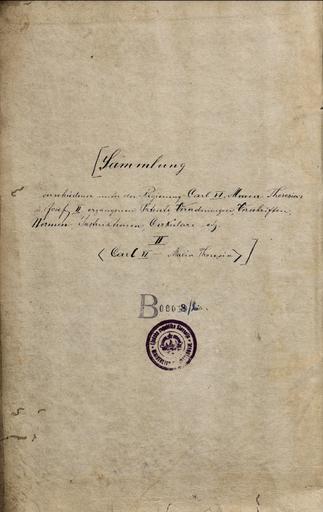 [Sammlung
verschiedener unter der Regierung Carl VI, Maria Theresia's
u. Josef II ergangenen Patente Verordnungen, Vorschriften,
Normen Instruktionen Cirkulare etz.
II
< Carl VI – Maria Theresia > ]
B